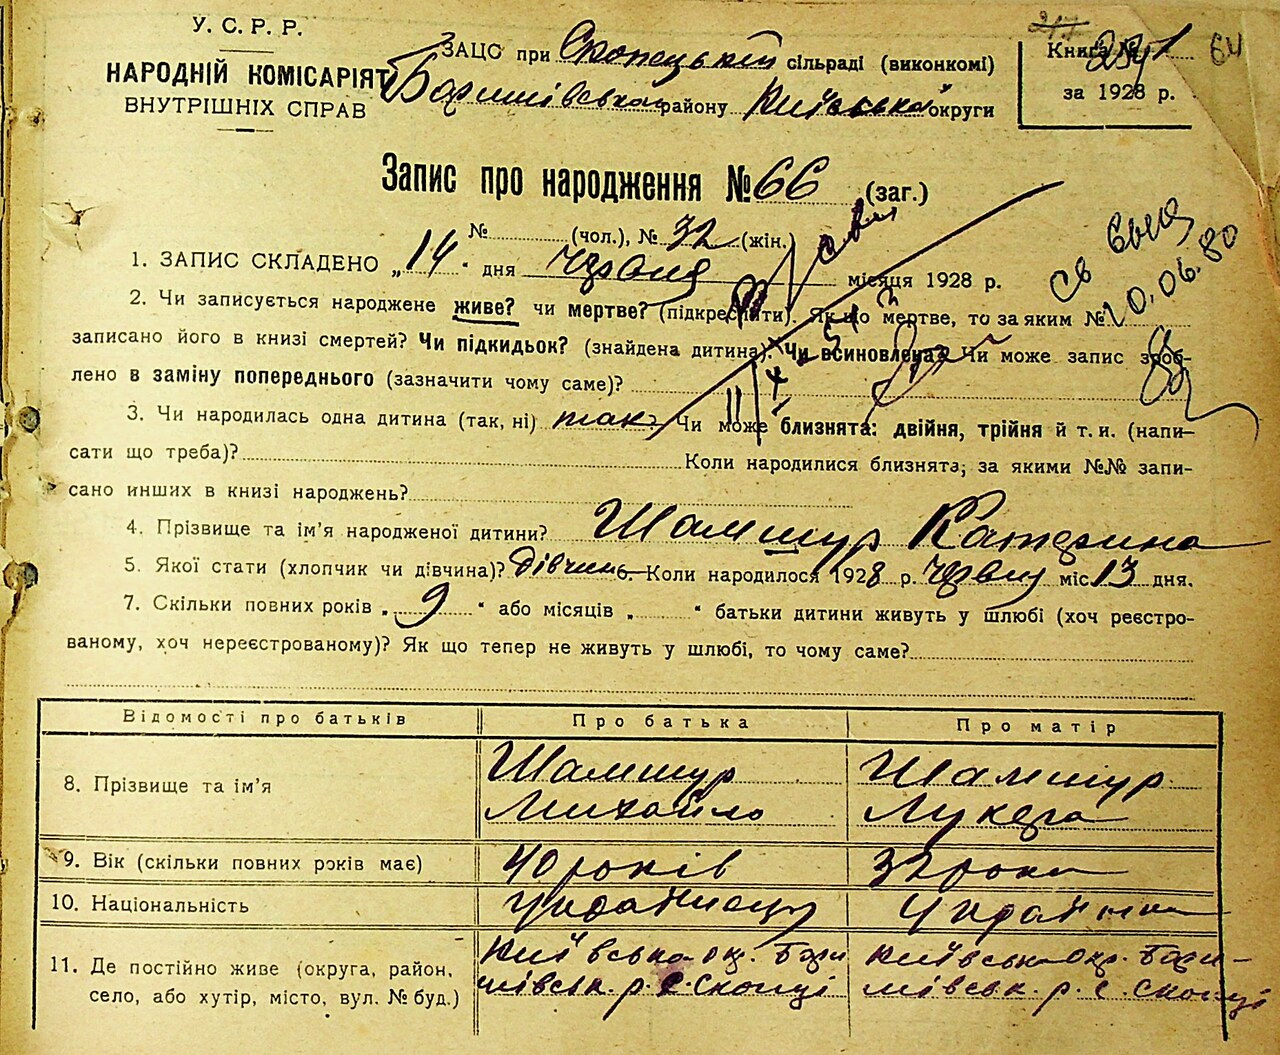 У. С. Р. Р.
НАРОДНІЙ КОМІСАРІЯТ
ВНУТРІШНІХ СПРАВ
ЗАЦС при Скопецькій сільраді (виконкомі)
Баришівської району Київської округи
217
Книга № 2371
64
за 1928 р.
Запис про народження № 66 (заг.)
№ (чол.), № 32 (жін.)
1. ЗАПИС СКЛАДЕНО „14“ дня червня місяця 1928 р.
10.06.80
2. Чи записується народжене живе? чи мертве? (підкреслити). Як що мертве, то за яким №
записано його в книзі смертей? Чи підкидьок? (знайдена дитина). Чи всиновлена? Чи може запис зроб-
лено в заміну попереднього (зазначити чому саме)?
3. Чи народилась одна дитина (так, ні) так. Чи може близнята: двійня, трійня й т. и. (напи-
сати що треба)? Коли народилися близнята, за якими №№ запи-
сано инших в книзі народжень?
4. Прізвище та ім’я народженої дитини? Шамшур Катерина
5. Якої стати (хлопчик чи дівчина)? дівчина 6. Коли народилося 1928 р. червня міс 13 дня.
7. Скільки повних років „ 9 “ або місяців „ “ батьки дитини живуть у шлюбі (хоч реєстро-
ваному, хоч нереєстрованому)? Як що тепер не живуть у шлюбі, то чому саме?
Відомості про батьків Про батька Про матір
8. Прізвище та ім’я Шамшур Михайло Шамшур Лукера
9. Вік (скільки повних років має) 40 років 32 роки
10. Національність Українець Українка
11. Де постійно живе (округа, район, Київська окр. Бари Київська окр. Бари-
село, або хутір, місто, вул. № буд.) шівськ. р. с. Скопці шівськ. р. с. Скопці